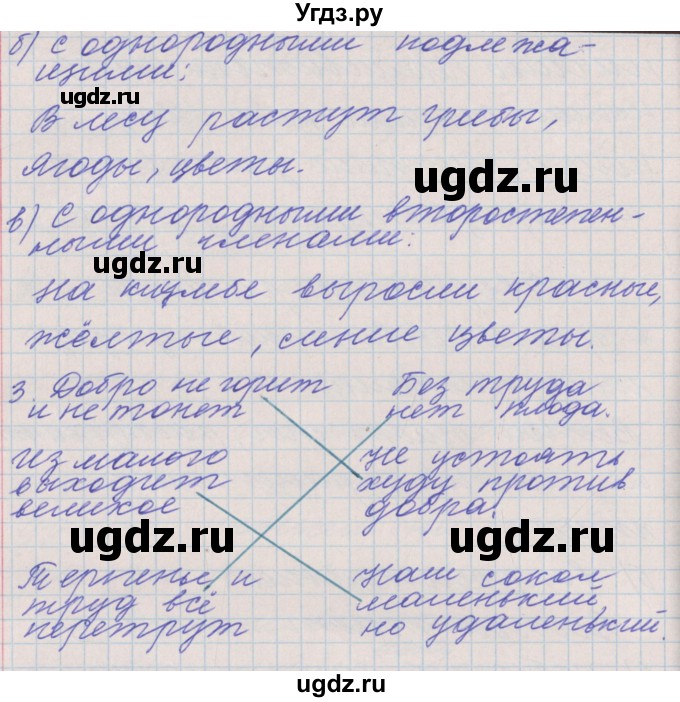 Угдз.ру
б) с однородными подлежа-
щими:
ugdz.ru
В лесу растут грибы,
ягоды, цветы.
ugdz.ru
в) С однородными второстепен-
ными членами:
ugdz.ru
На клумбе выросли красные,
жёлтые, синие цветы.
ugdz.ru
3. Добро не горит
и не тонет
Без труда
нет плода.
Из малого
выходит
великое
Не устоять
худу против
добра.
ugdz.ru
ugdz.ru
Терпенье и
труд всё
перетрут
Наш сокол
маленький,
но удаленький.
ugdz.ru